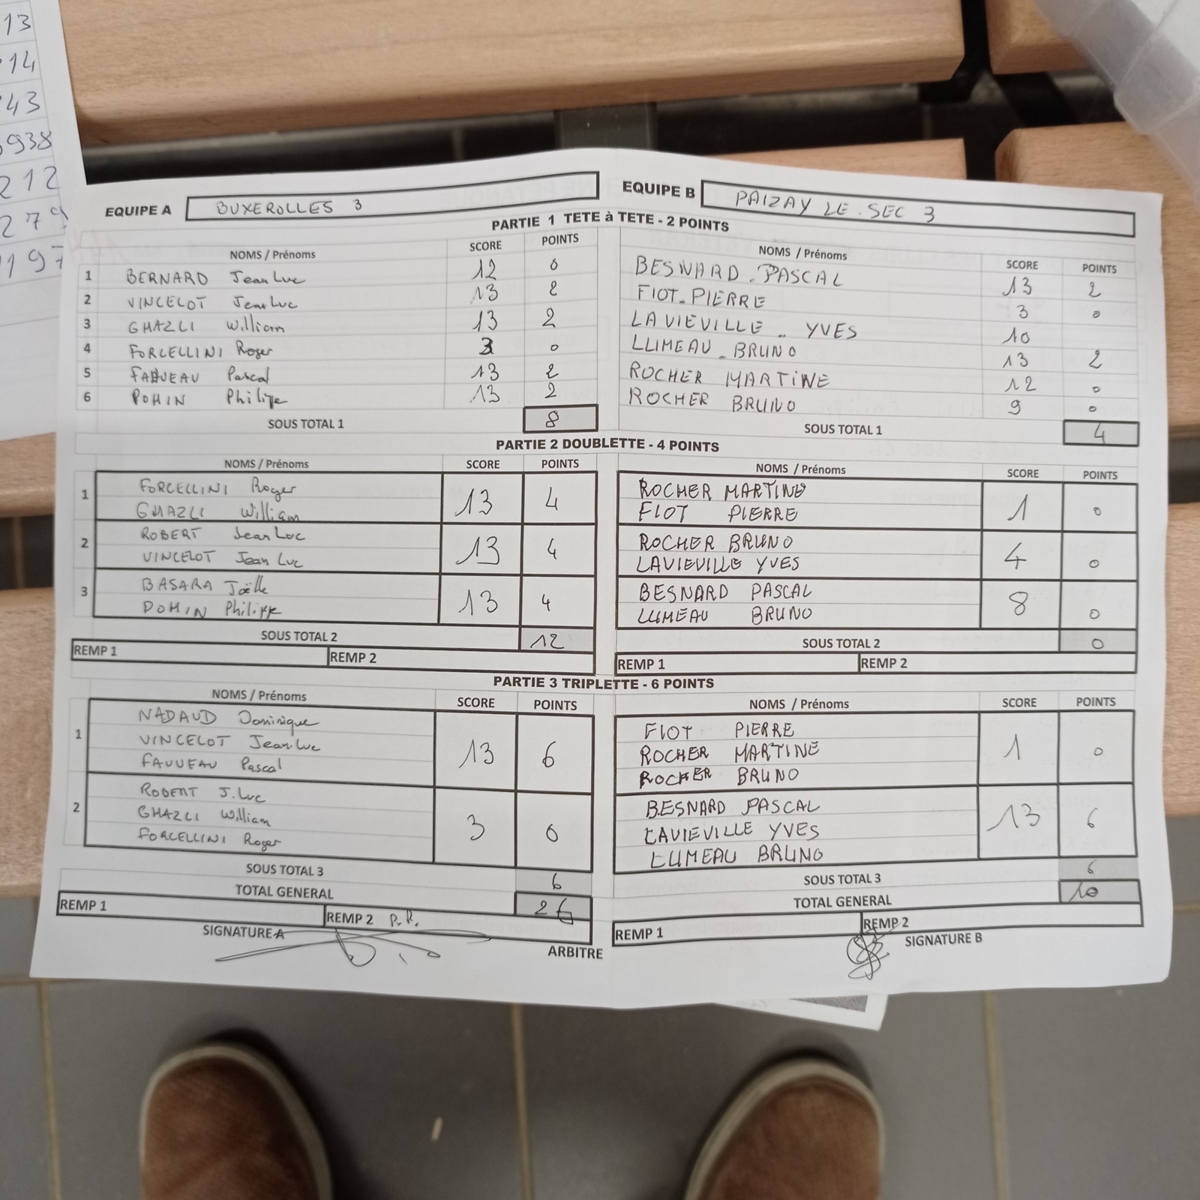 13
14
43
938
212
279
197
EQUIPE A BUXEROLLES 3 EQUIPE B PAIZAY LE SEC 3
PARTIE 1 TETE à TETE - 2 POINTS
NOMS / Prénoms SCORE POINTS NOMS / Prénoms SCORE POINTS
1 BERNARD Jean Luc 12 0 BESNARD PASCAL 13 2
2 VINCELOT Jean Luc 13 2 FIOT PIERRE 3 0
3 GHAZLI William 13 2 LAVIEVILLE YVES 10
4 FORCELLINI Roger 3 0 LUMEAU BRUNO 13 2
5 FAUVEAU Pascal 13 2 ROCHER MARTINE 12 0
6 DOHIN Philippe 13 2 ROCHER BRUNO 9 0
SOUS TOTAL 1 8 SOUS TOTAL 1 4
PARTIE 2 DOUBLETTE - 4 POINTS
NOMS / Prénoms SCORE POINTS NOMS / Prénoms SCORE POINTS
1 FORCELLINI Roger 13 4 ROCHER MARTINE 1 0
GHAZLI William FIOT PIERRE
2 ROBERT Jean Luc 13 4 ROCHER BRUNO 4 0
VINCELOT Jean Luc LAVIEVILLE YVES
3 BASARA Joëlle 13 4 BESNARD PASCAL 8 0
DOHIN Philippe LUMEAU BRUNO
SOUS TOTAL 2 12 SOUS TOTAL 2 0
REMP 1 REMP 2 REMP 1 REMP 2
PARTIE 3 TRIPLETTE - 6 POINTS
NOMS / Prénoms SCORE POINTS NOMS / Prénoms SCORE POINTS
1 NADAUD Dominique 13 6 FIOT PIERRE 1 0
VINCELOT Jean Luc ROCHER MARTINE
FAUVEAU Pascal ROCHER BRUNO
2 ROBERT J.Luc 3 0 BESNARD PASCAL 13 6
GHAZLI William LAVIEVILLE YVES
FORCELLINI Roger LUMEAU BRUNO
SOUS TOTAL 3 6 SOUS TOTAL 3 6
TOTAL GENERAL 26 TOTAL GENERAL 10
REMP 1 REMP 2 REMP 1 REMP 2
SIGNATURE A ARBITRE SIGNATURE B